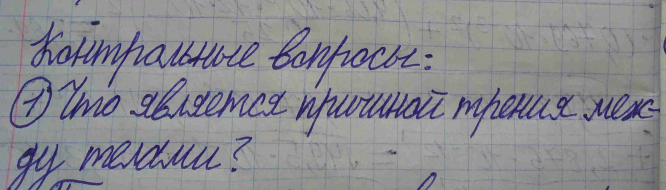 Контрольные вопросы:
① Что является причиной трения меж-
ду телами?